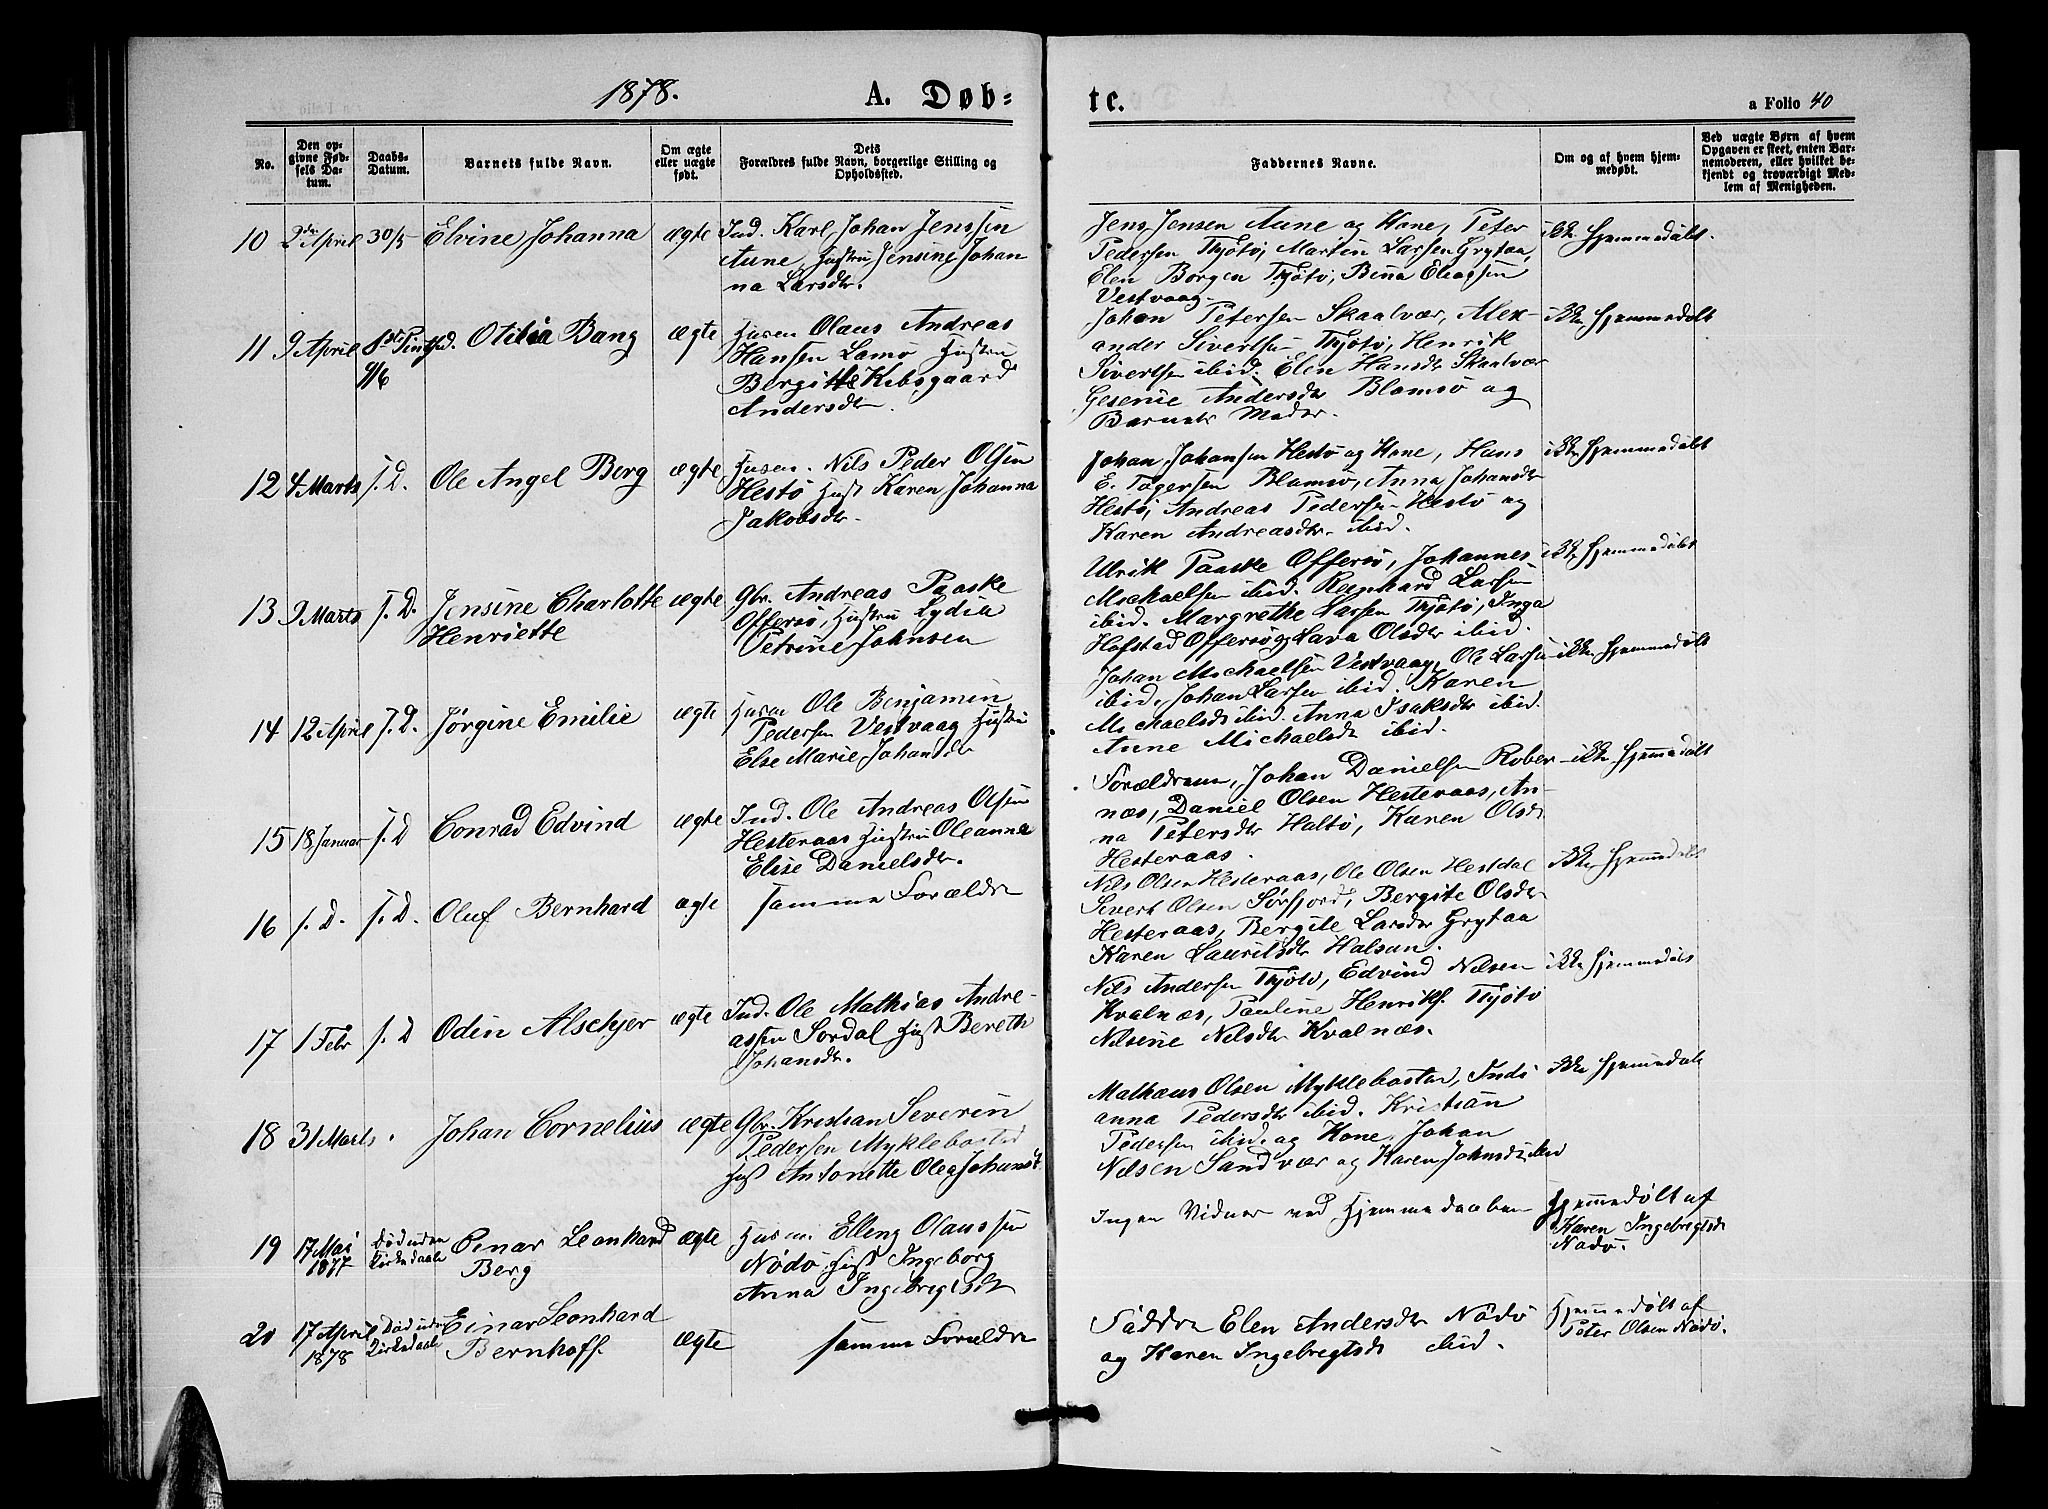 1878. A. Døb=
te.
a Folio 40
No.
Den op-
givne Fød-
sels Da-
tum.
Daabs-
Datum.
Barnets fulde Navn.
Om ægte
eller uægte
født.
Dets
Forældres fulde Navn, borgerlige Stilling og
Opholdssted.
Faddernes Navne.
Om og af hvem hjem-
medøbt.
Ved uægte Børn af hvem
Opgaven er skeet, enten Bar-
nemoderen, eller hvilket be-
kjendt og troværdigt Med-
lem af Menigheden.
10 2den April 30/5 Elvine Johanna ægte Ind. Karl Johan Jenssen
Aune, Hustru Jensine Johan
na Larsdtr.
Jens Jensen Aune og Kone, Peter
Pedersen Thjøtø, Martin Larsen Grytaa,
Elen Borgen Thjøtø, Bina Eliasen
Vestvaag.
ikke hjemmedøbt.
11 9 April 1ste Pintsd.
9/6
Otilia Bang ægte Husm Olaus Andreas
Hansen Lamø Hustru
Bergitte Kibsgaard
Andersdtr.
Johan Petersen Skaalvær, Alex-
ander Sivertsen Thjøtø, Henrik
Sivertsen ibid. Elen Hansdtr Skaalvær
Gesenie Andersdtr Blomsø og
Barnets Moder.
ikke hjemmedøbt
12 4 Marts s. D. Ole Angel Berg ægte Husm. Nils Peder Olsen
Hestø Hust Karen Johanna
Jakobsdtr.
Johan Johansen Hestø og Kone, Hans
E. Tøgersen Blomsø, Anna Johansdtr
Hestø, Andreas Pedersen Hestø og
Karen Andreasdtr ibid.
ikke hjemmedøbt
13 9 Marts s. D. Jensine Charlotte
Henriette
ægte Gbr. Andreas Paaske
Offersø, Hustru Lydia
Petrine Johnsen
Ulrik Paaske Offersø, Johannes
Michaelsen ibid. Reinhard Larsen
ibid. Margrethe Larsen Thjøtø, Inga
Hofstad Offersø og Lava Olsdtr ibid.
ikke hjemmedøbt
14 12 April s. D. Jørgine Emilie ægte Husm Ole Benjamin
Pedersen Vestvaag Hustru
Else Marie Johansdtr
Johan Michaelsen Vestvaag, Ole Larsen
ibid, Johan Larsen ibid. Karen
Michaelsdtr ibid. Anna Isaksdtr ibid.
Anne Michaelsdtr ibid.
ikke hjemmedøbt
15 18 Januar s. D Conrad Edvind ægte Ind. Ole Andreas Olsen
Hesteraas Hustru Oleanna
Elise Danielsdtr.
Forældrene, Johan Danielsen Rober-
næs, Daniel Olsen Hesteraas, An-
na Petersdtr Haltø, Karen Olsdtr
Hesteraas.
ikke hjemmedøbt
16 s. D. s. D. Oluf Bernhard ægte samme Forældre
Nils Olsen Hesteraas, Ole Olsen Hestdal
Sivert Olsen Sørfjord, Bergite Olsdtr
Hesteraas, Bergite Larsdtr Grytaa
Karen Lauritsdtr Halsan.
ikke hjemmedøbt
17 1 Febr s. D Odin Alschjer ægte Ind. Ole Mathias Andre-
assen Sørdal Hust Bereth
Johansdtr.
Nils Andersen Thjøtø, Edvind Nilsen
Kvalnæs, Pauline Henriks. Thjøtø
Nilsine Nilsdtr Kvalnæs.
ikke hjemmedøbt
18 31 Marts Johan Cornelius ægte Gbr. Kristian Severin
Pedersen Myklebostad
Hust Antonette Olea Johansdtr
Mathæus Olsen Myklebostad, Indi
anna Pedersdtr ibid. Kristian
Pedersen ibid. og Kone. Johan
Nilsen Sandvær og Karen Johnsdtr ibid
ikke hjemmedøbt
19 17 Mai
1877
Død uden
Kirkedaab
Einar Leonhard
Berg
ægte Husm. Elling Olaussen
Nødø, Hust Ingeborg
Anna Ingebrigtsdtr
Ingen Vidner ved Hjemmedaaben
Hjemmedøbt af
Karen Ingebregtsdtr
Nødø.
20 17 April
1878
Død uden
Kirkedaab
Einar Leonhard
Bernhoff
ægte samme Forældre
Faddre Elen Andersdtr Nødø
og Karen Ingebregtsdtr ibid.
Hjemmedøbt af
Peter Olsen Nødø.